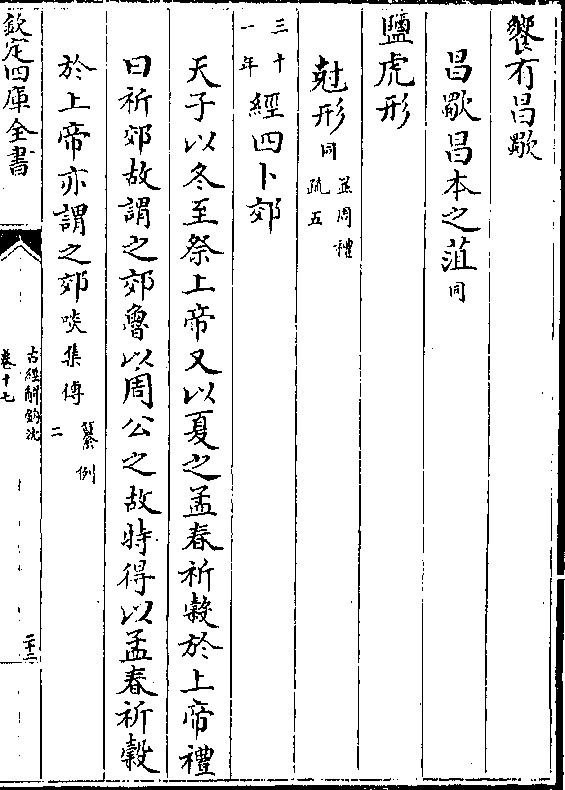 饗有昌歜
昌歜昌本之菹同
鹽虎形
尅形同並周禮疏五
三十一年經四卜郊
天子以冬至祭上帝又以夏之孟春祈穀於上帝禮
曰祈郊故謂之郊魯以周公之故時得以孟春祈穀
於上帝亦謂之郊啖集傳纂例二
欽定四庫全書
古經解鈎沈
卷十七
二十二